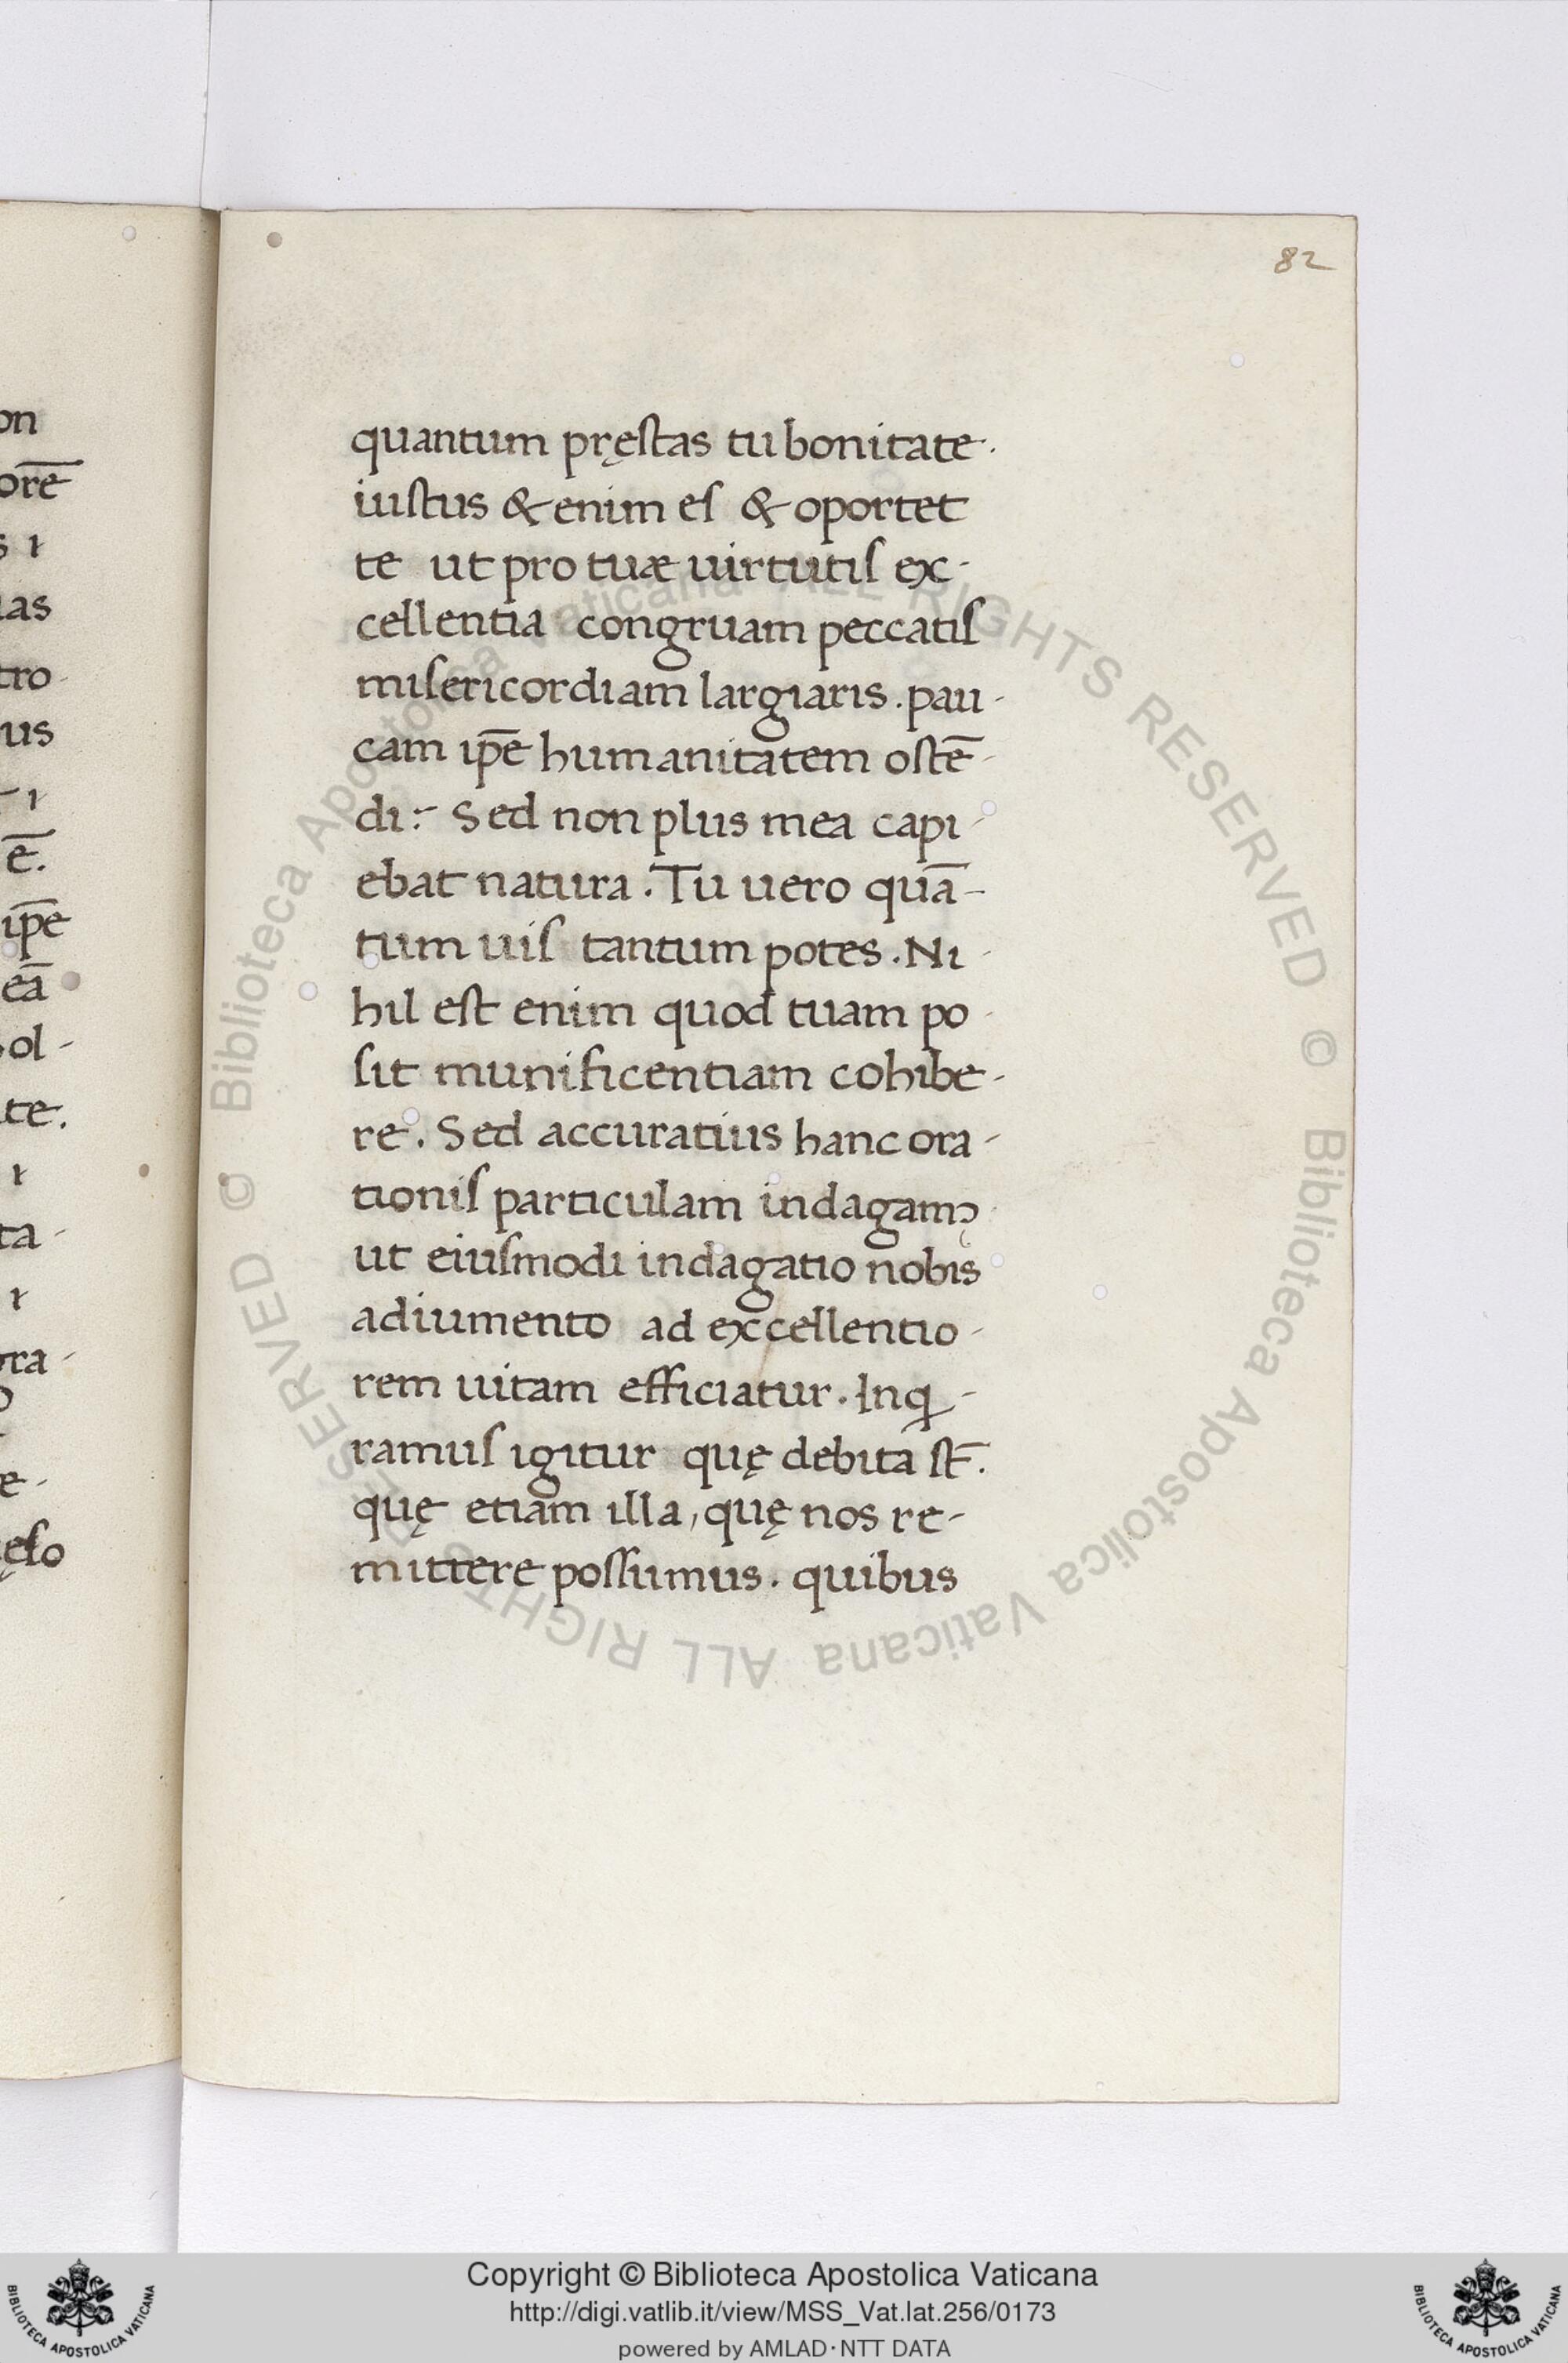 82
quantum pręſtas tu bonitate.
iuſtus & enim eſ & oportet
te ut pro tuæ uirtutiſ ex-
cellentia congruam peccatiſ
miſericordiam largiaris. pau-
cam ip̄e humanitatem oſtē-
di: Sed non plus mea capi-
ebat natura. Tu uero quā-
tum uiſ tantum potes. Ni-
hil eſt enim quod tuam po-
ſit munificentiam cohibe-
re. Sed accuratius hanc ora-
tioniſ particulam indagamꝰ
ut eiuſmodi indagatio nobis
adiumento ad excellentio-
rem uitam efficiatur. Inq-
ramuſ igitur quę debita ſt̄.
quę etiam illa, quę nos re-
mittere poſſumus. quibus
on
orē
s i
uas
tro-
us
i
ē.
ip̄e
eā
ol-
te.
i
ta-
i
ra-
e-
ęſo
© Biblioteca Apostolica Vaticana ALL RIGHTS RESERVED © Biblioteca Apostolica Vaticana ALL RIGHTS RESERVED
Copyright © Biblioteca Apostolica Vaticana
http://digi.vatlib.it/view/MSS_Vat.lat.256/0173
powered by AMLAD·NTT DATA
BIBLIOTECA APOSTOLICA VATICANA
BIBLIOTECA APOSTOLICA VATICANA